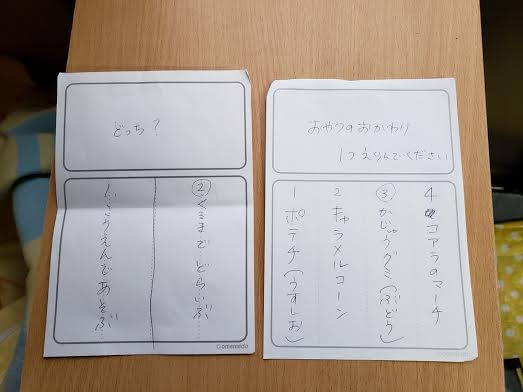 どっち?
②くるまで どらいぶ
1.こうえんであそぶ
©omemedo
おやつのおかわり
1つえらんでください
4 コアラのマーチ
③かじゅうグミ(ぶどう)
2 キャラメルコーン
1 ポテチ(うすしお)
©omemedo